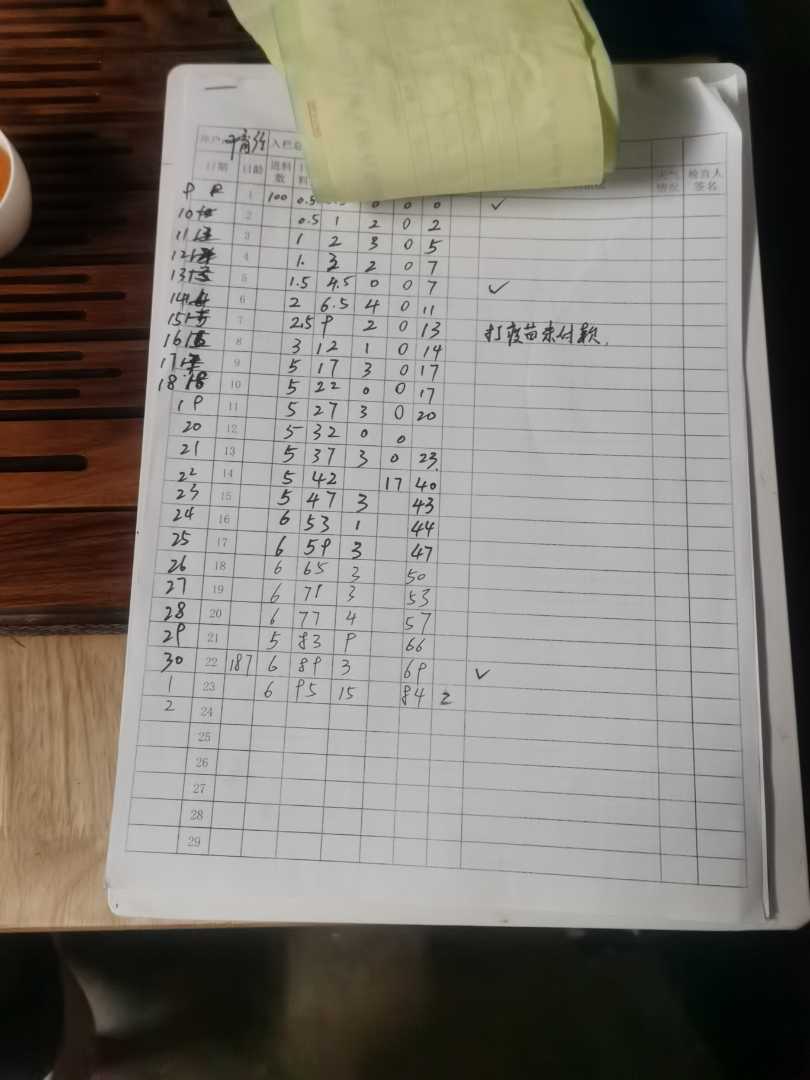 入栏
日期 日龄 进料数 情况 检查人签名
1 100 0.5 0 0 0 ✓
10 2 0.5 1 2 0 2
11 3 1 2 3 0 5
12 4 1. 3 2 0 7
13 5 1.5 4.5 0 0 7 ✓
14 6 2 6.5 4 0 11
15 7 2.5 9 2 0 13 打疫苗未付款.
16 8 3 12 1 0 14
17 9 5 17 3 0 17
18 10 5 22 0 0 17
19 11 5 27 3 0 20
20 12 5 32 0 0
21 13 5 37 3 0 23.
22 14 5 42 17 40
23 15 5 47 3 43
24 16 6 53 1 44
25 17 6 59 3 47
26 18 6 65 3 50
27 19 6 71 3 53
28 20 6 77 4 57
29 21 5 83 9 66
30 22 187 6 89 3 69 ✓
1 23 6 95 15 84 2
2 24
25
26
27
28
29